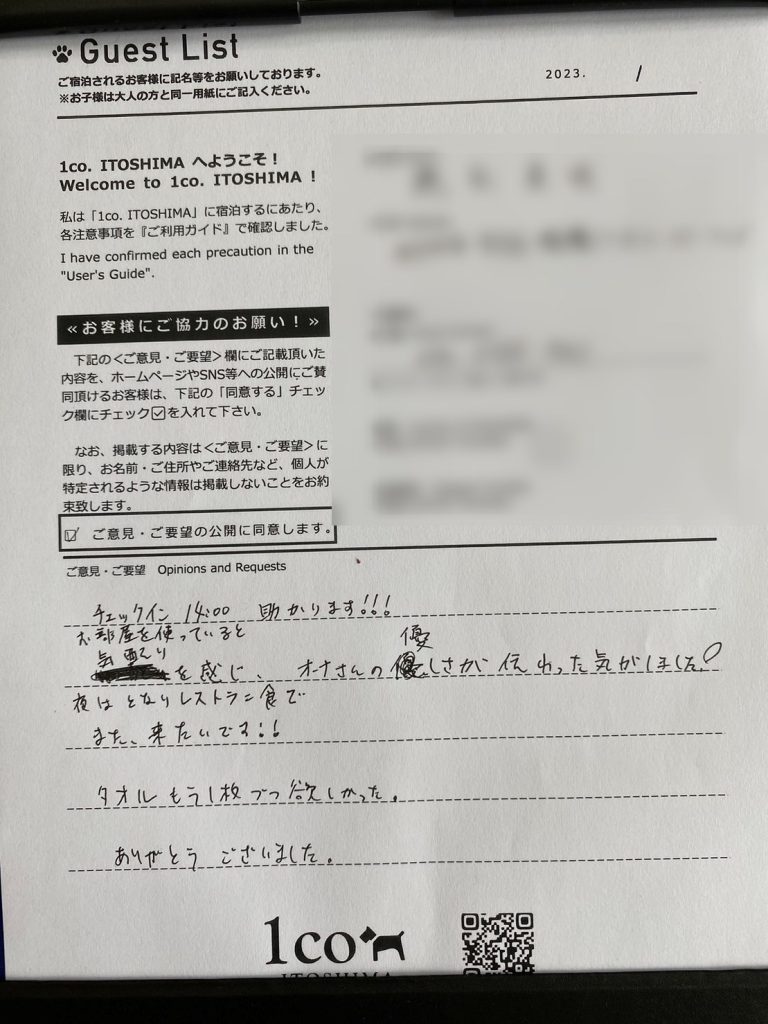 Guest List
ご宿泊されるお客様に記名等をお願いしております。
※お子様は大人の方と同一用紙にご記入ください。
2023. /
1co. ITOSHIMA へようこそ！
Welcome to 1co. ITOSHIMA !
私は「1co. ITOSHIMA」に宿泊するにあたり、
各注意事項を『ご利用ガイド』で確認しました。
I have confirmed each precaution in the
"User's Guide".
≪お客様にご協力のお願い！≫
下記の＜ご意見・ご要望＞欄にご記載頂いた
内容を、ホームページやSNS等への公開にご賛
同頂けるお客様は、下記の「同意する」チェッ
ク欄にチェック☑を入れて下さい。
なお、掲載する内容は＜ご意見・ご要望＞に
限り、お名前・ご住所やご連絡先など、個人が
特定されるような情報は掲載しないことをお約
束致します。
☑ ご意見・ご要望の公開に同意します。
ご意見・ご要望 Opinions and Requests
チェックイン 14:00 助かります!!!
お部屋を使っていると
気配り を感じ、オーナさんの優しさが伝わった気がしました!
夜は となりレストラン食で
また、来たいです!!
タオル もう1枚づつ欲しかった。
ありがとう ございました。
1co
ITOSHIMA